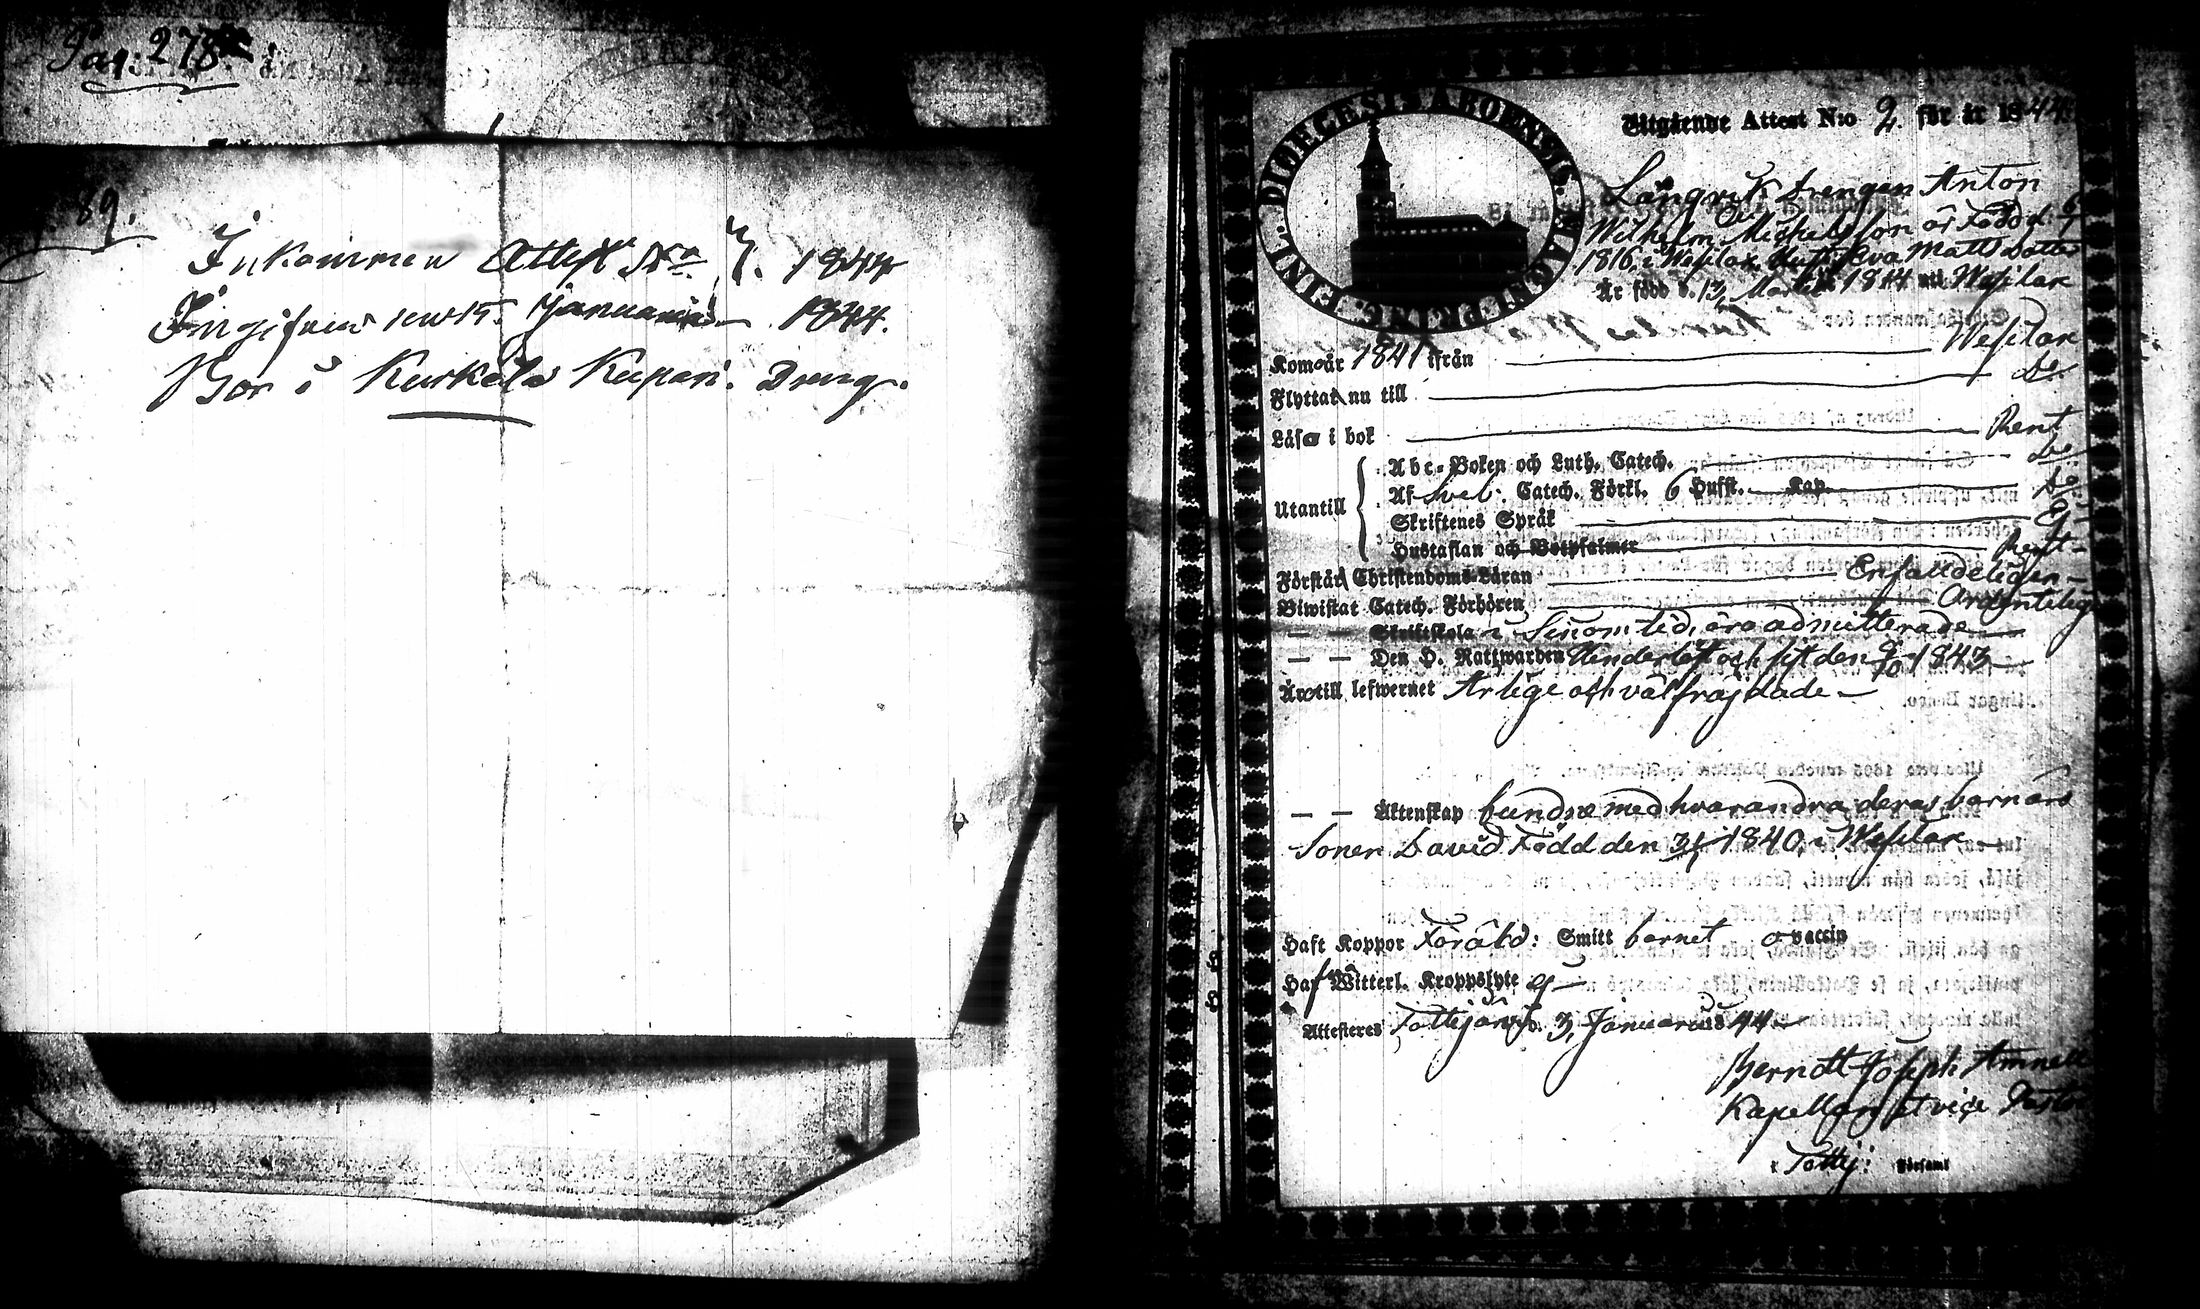 Pag: 278.
89.
Inkommen Attest No 7. 1844
Ingifven den 15. Januarii 1844.
Bor i Kurkela Kupari. Dreng.
DIOECESIS ABOENSIS. MAGNI PRINC. FINL.
Utgående Attest N:o 2. för år 1844
Långvik Drengen Anton
Wilhelm Michelsson är Född d. 6/7
1816, i Westlax, Hust. Eva Matts Dotter
Är född d. 13 Martii 1814 uti Westlax
Kom år 1841 ifrån Westlax
Flyttat nu till Do.
Läsa i bok Rent
Utantill
Abc-Boken och Luth. Catech. Do
Af Sveb. Catech. Förkl. 6 Hufst. Kap. Do
Skriftenes Språk Ej
Hustaflan och Botpsalmer Rent
Förstår Christendoms-Läran Enfaldeligen
Biwistat Catech. Förhören Ordentelig
— — Skriftskola i sinom tid, äro admitterade
— — Den H. Nattwarden och sist den 8/10 1843
Äro till lefwernet Ärlige och välfrajdade
— — Äktenskap bundne med hvarandra, deras barn äro
Sonen David Född den 31/1 1840, i Westlax
Haft Koppor Föräld: Smitt barnet vaccin
Haf Witterl. Kroppslyte ej
Attesteras d. 3 Januarius 44
Berndt Joseph
Kapellan et vice Pastor
i Församl